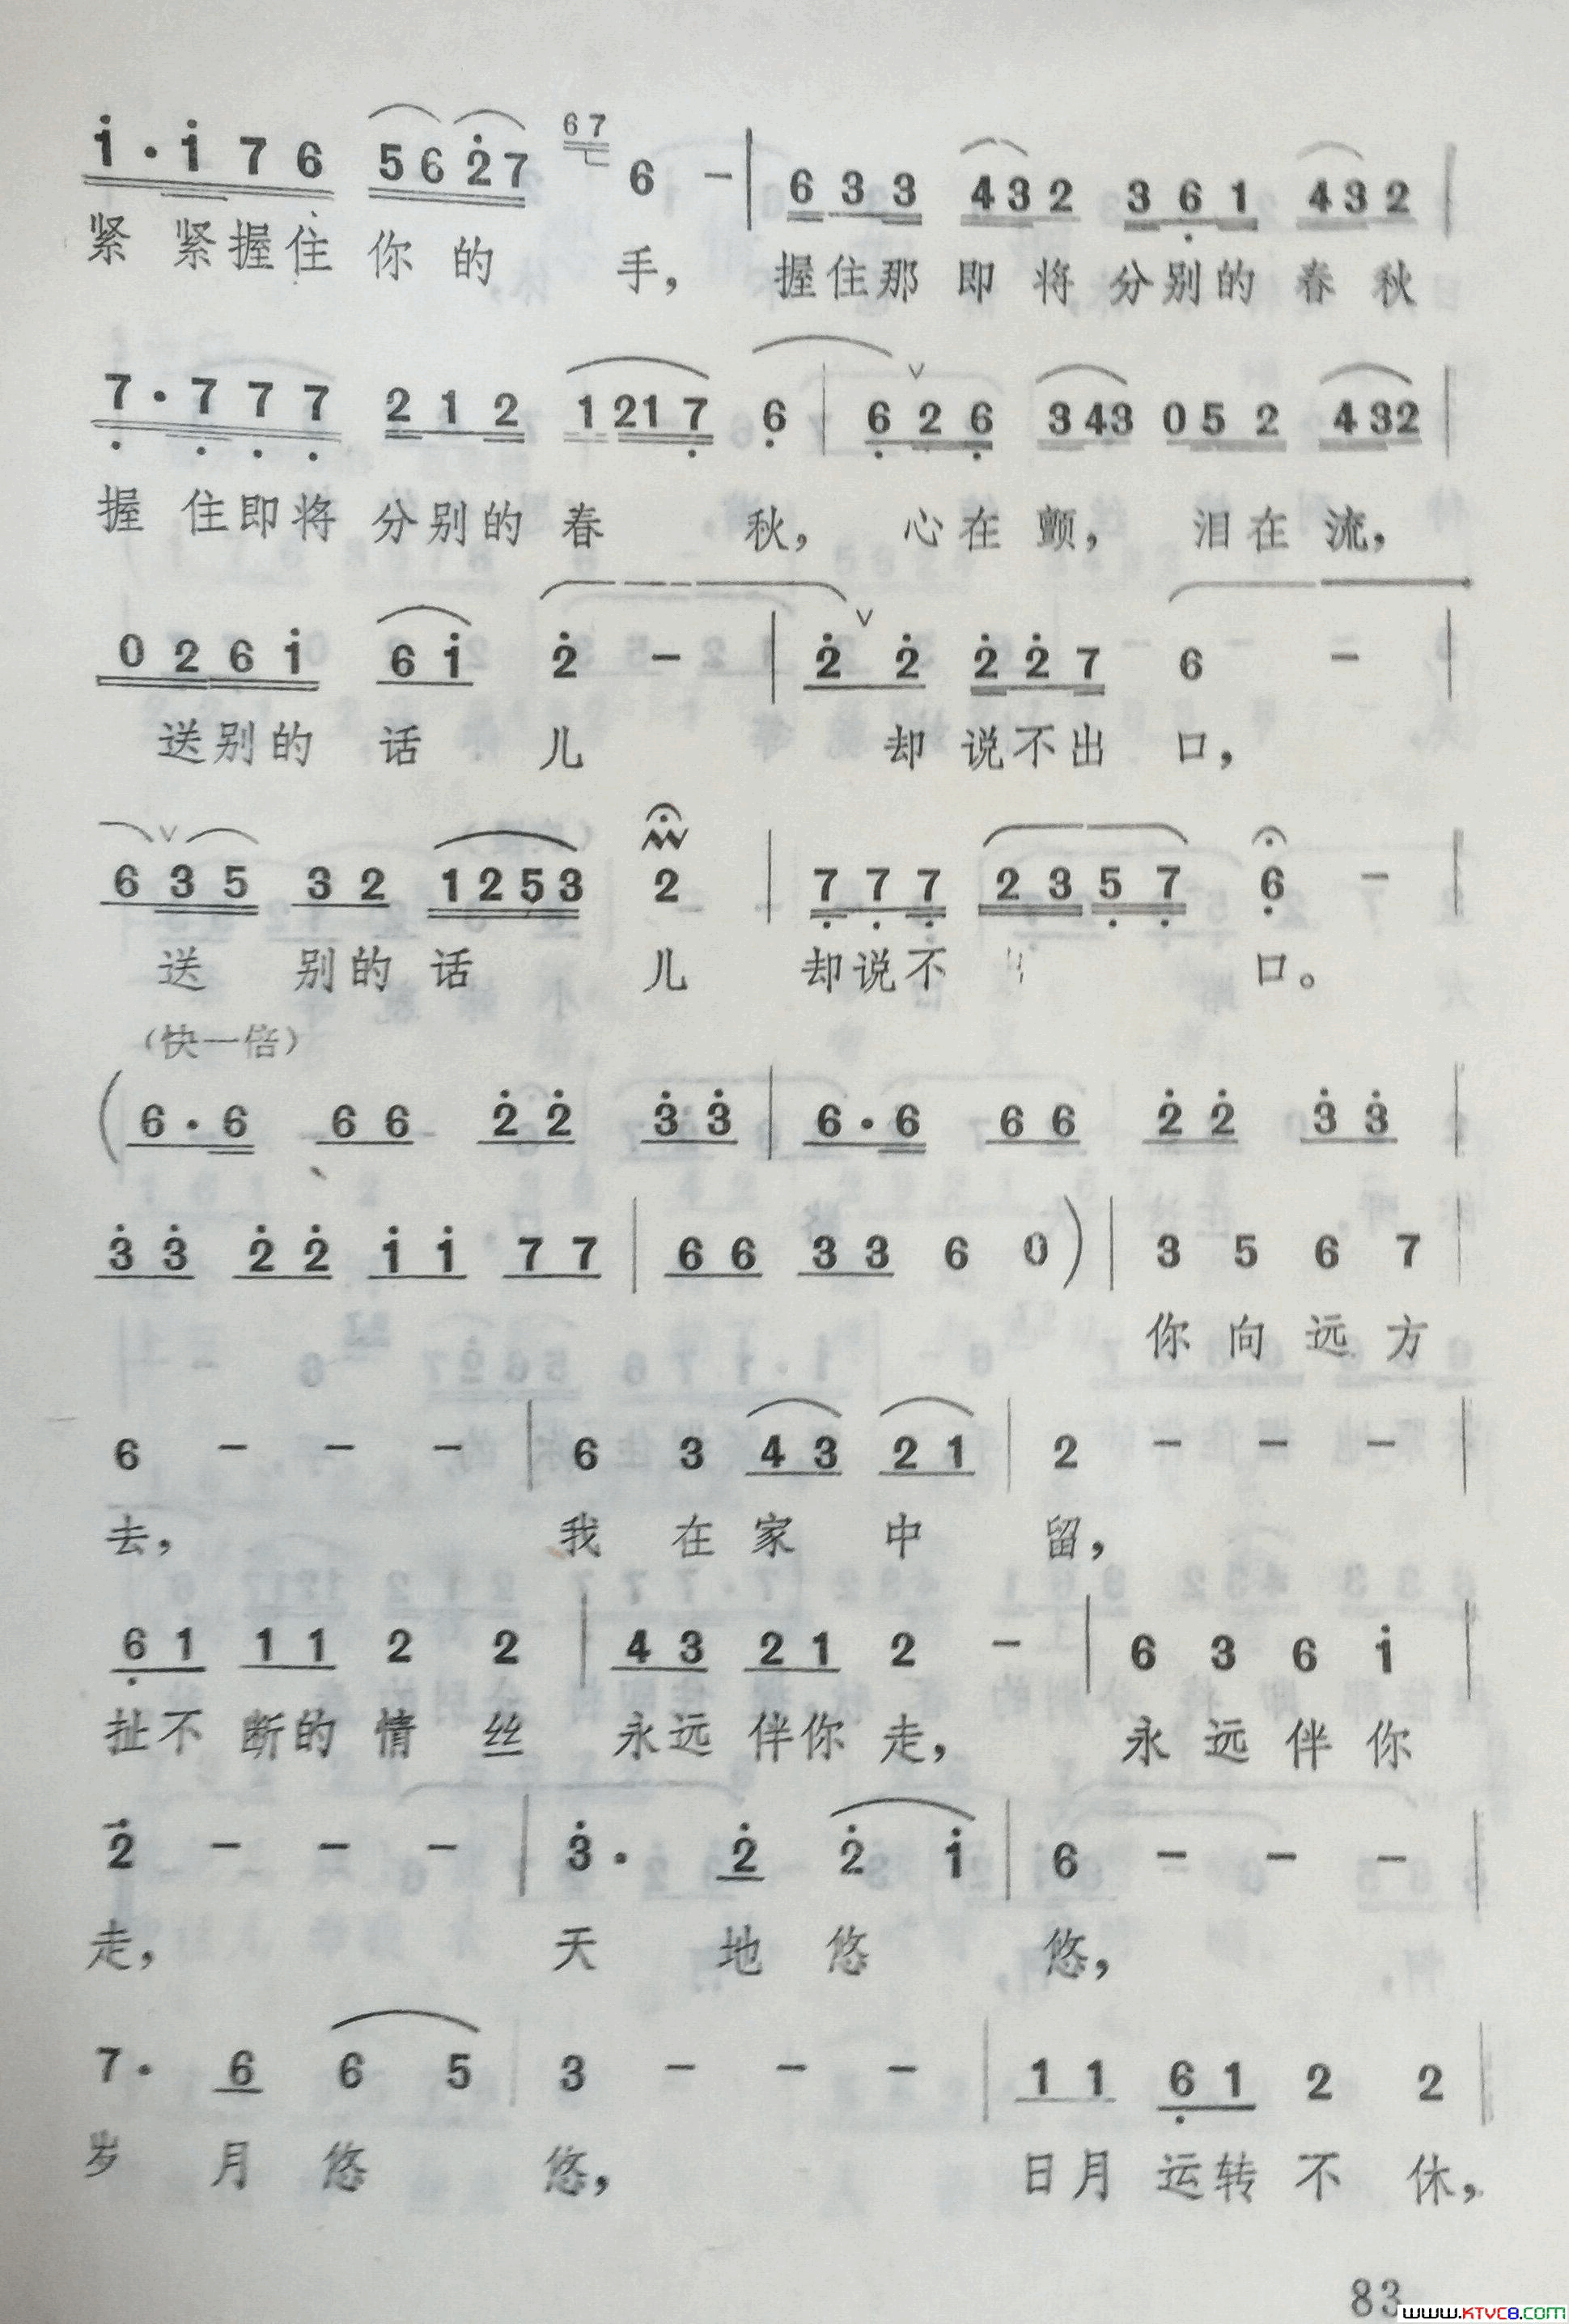 1·1 7 6 5 6 2 7 67 6 - | 6 3 3 4 3 2 3 6 1 4 3 2 |
紧 紧握住 你 的 手， 握住那 即 将 分别的 春 秋
7·7 7 7 2 1 2 1 2 1 7 6 | 6 2 6 3 4 3 0 5 2 4 3 2 |
握 住即将 分别的 春 秋， 心在 颤， 泪在 流，
0 2 6 1 6 1 2 - | 2 2 2 2 7 6 - |
送别的 话 儿 却 说不出 口，
6 3 5 3 2 1 2 5 3 2 | 7 7 7 2 3 5 7 6 - |
送 别的 话 儿 却说不 口。
（快一倍）
( 6·6 6 6 2 2 3 3 | 6·6 6 6 2 2 3 3 |
3 3 2 2 1 1 7 7 | 6 6 3 3 6 0 ) | 3 5 6 7 |
你 向 远 方
6 - - - | 6 3 4 3 2 1 | 2 - - - |
去， 我 在 家 中 留，
6 1 1 1 2 2 | 4 3 2 1 2 - | 6 3 6 1 |
扯不 断的 情 丝 永远 伴你 走， 永 远 伴 你
2 - - - | 3· 2 2 1 | 6 - - - |
走， 天 地 悠 悠，
7· 6 6 5 | 3 - - - | 1 1 6 1 2 2 |
岁 月 悠 悠， 日月 运转 不 休，
83
www.KTVC8.com